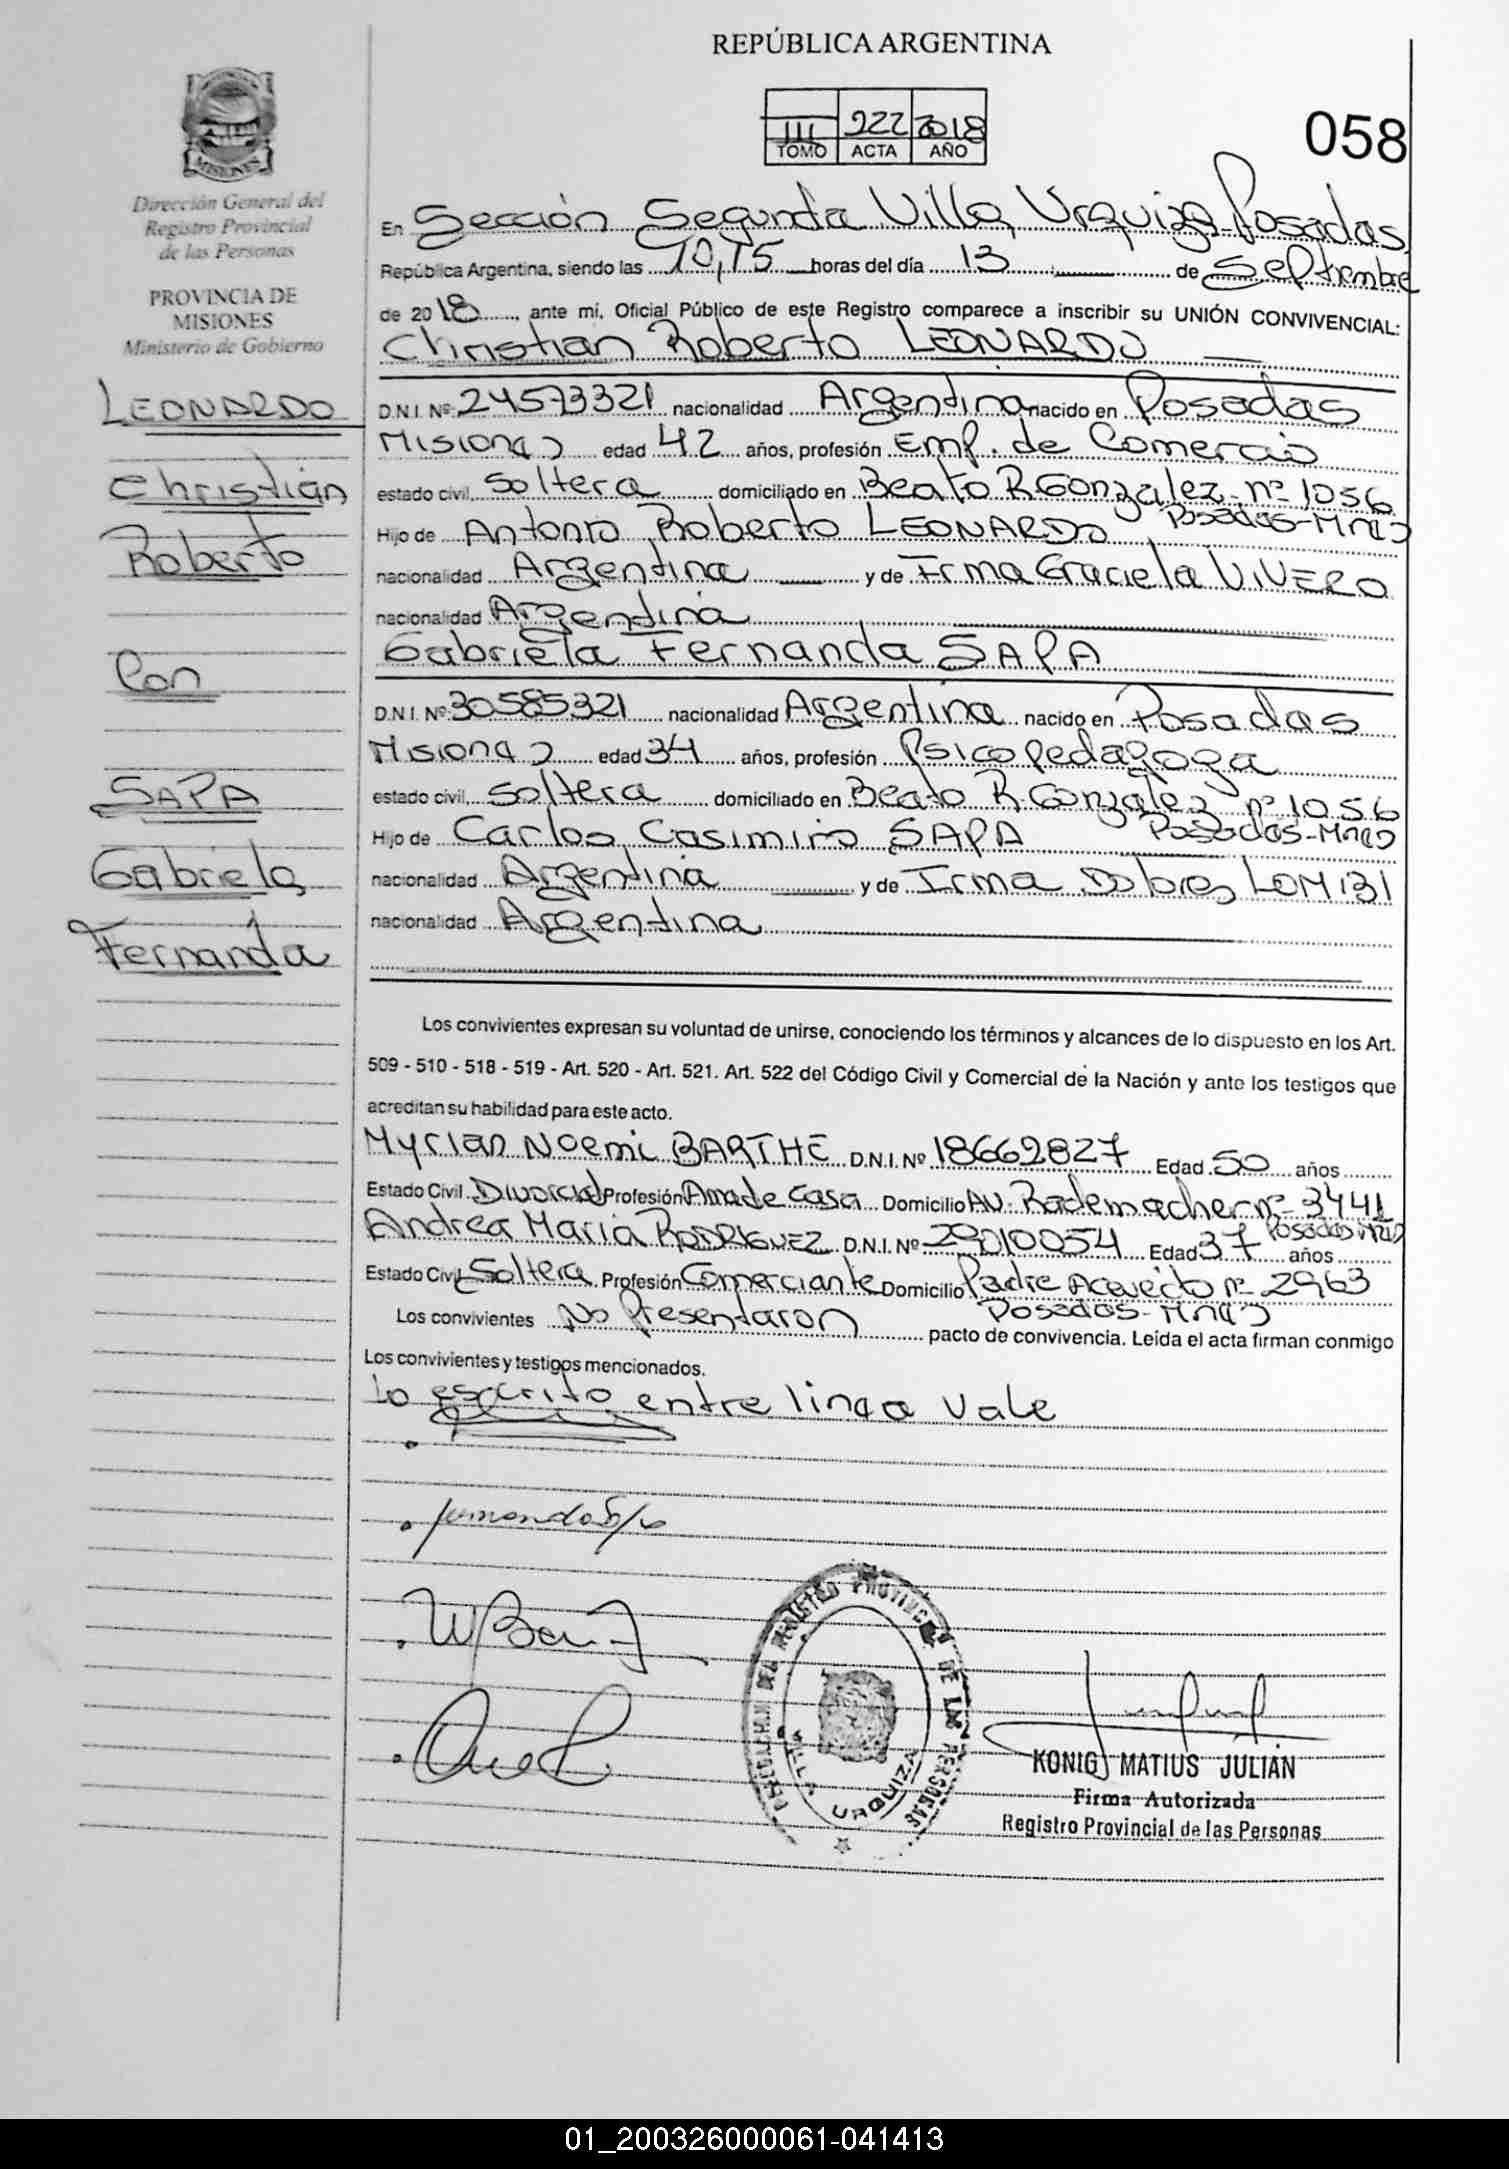 REPÚBLICA ARGENTINA
III 222 2018
TOMO ACTA AÑO
058
Dirección General del
Registro Provincial
de las Personas
PROVINCIA DE
MISIONES
Ministerio de Gobierno
LEONARDO
Christian
Roberto
Con
SAPA
Gabriela
Fernanda
En Sección Segunda Villa Urquiza Posadas
República Argentina, siendo las 10,15 horas del día 13 de Septiembre
de 2018, ante mí, Oficial Público de este Registro comparece a inscribir su UNIÓN CONVIVENCIAL:
Christian Roberto LEONARDO
D.N.I. Nº 24573321 nacionalidad Argentina nacido en Posadas
Misiones edad 42 años, profesión Emp. de Comercio
estado civil, Soltera domiciliado en Beato R Gonzalez nº 1056
Posadas-Mnes
Hijo de Antonio Roberto LEONARDO
nacionalidad Argentina y de Irma Graciela VIVERO
nacionalidad Argentina
Gabriela Fernanda SAPA
D.N.I. Nº 30585321 nacionalidad Argentina nacido en Posadas
Misiones edad 34 años, profesión Psicopedagoga
estado civil, Soltera domiciliado en Beato R Gonzalez nº 1056
Posadas-Mnes
Hijo de Carlos Casimiro SAPA
nacionalidad Argentina y de Irma Dolores LOMBI
nacionalidad Argentina
Los convivientes expresan su voluntad de unirse, conociendo los términos y alcances de lo dispuesto en los Art.
509 - 510 - 518 - 519 - Art. 520 - Art. 521. Art. 522 del Código Civil y Comercial de la Nación y ante los testigos que
acreditan su habilidad para este acto.
Myrian Noemi BARTHE D.N.I. Nº 18662827 Edad 50 años
Estado Civil Divorciad Profesión Ama de Casa Domicilio AV. Rademacher nº 3441
Posadas Mnes
Andrea Maria RODRIGUEZ D.N.I. Nº 29010054 Edad 37 años
Estado Civil Soltera Profesión Comerciante Domicilio Padre Acevedo nº 2963
Posadas-Mnes
Los convivientes No Presentaron pacto de convivencia. Leída el acta firman conmigo
Los convivientes y testigos mencionados.
Lo escrito entre linea vale
KONIG MATIUS JULIÁN
Firma Autorizada
Registro Provincial de las Personas
VILLA URQUIZA
01_200326000061-041413